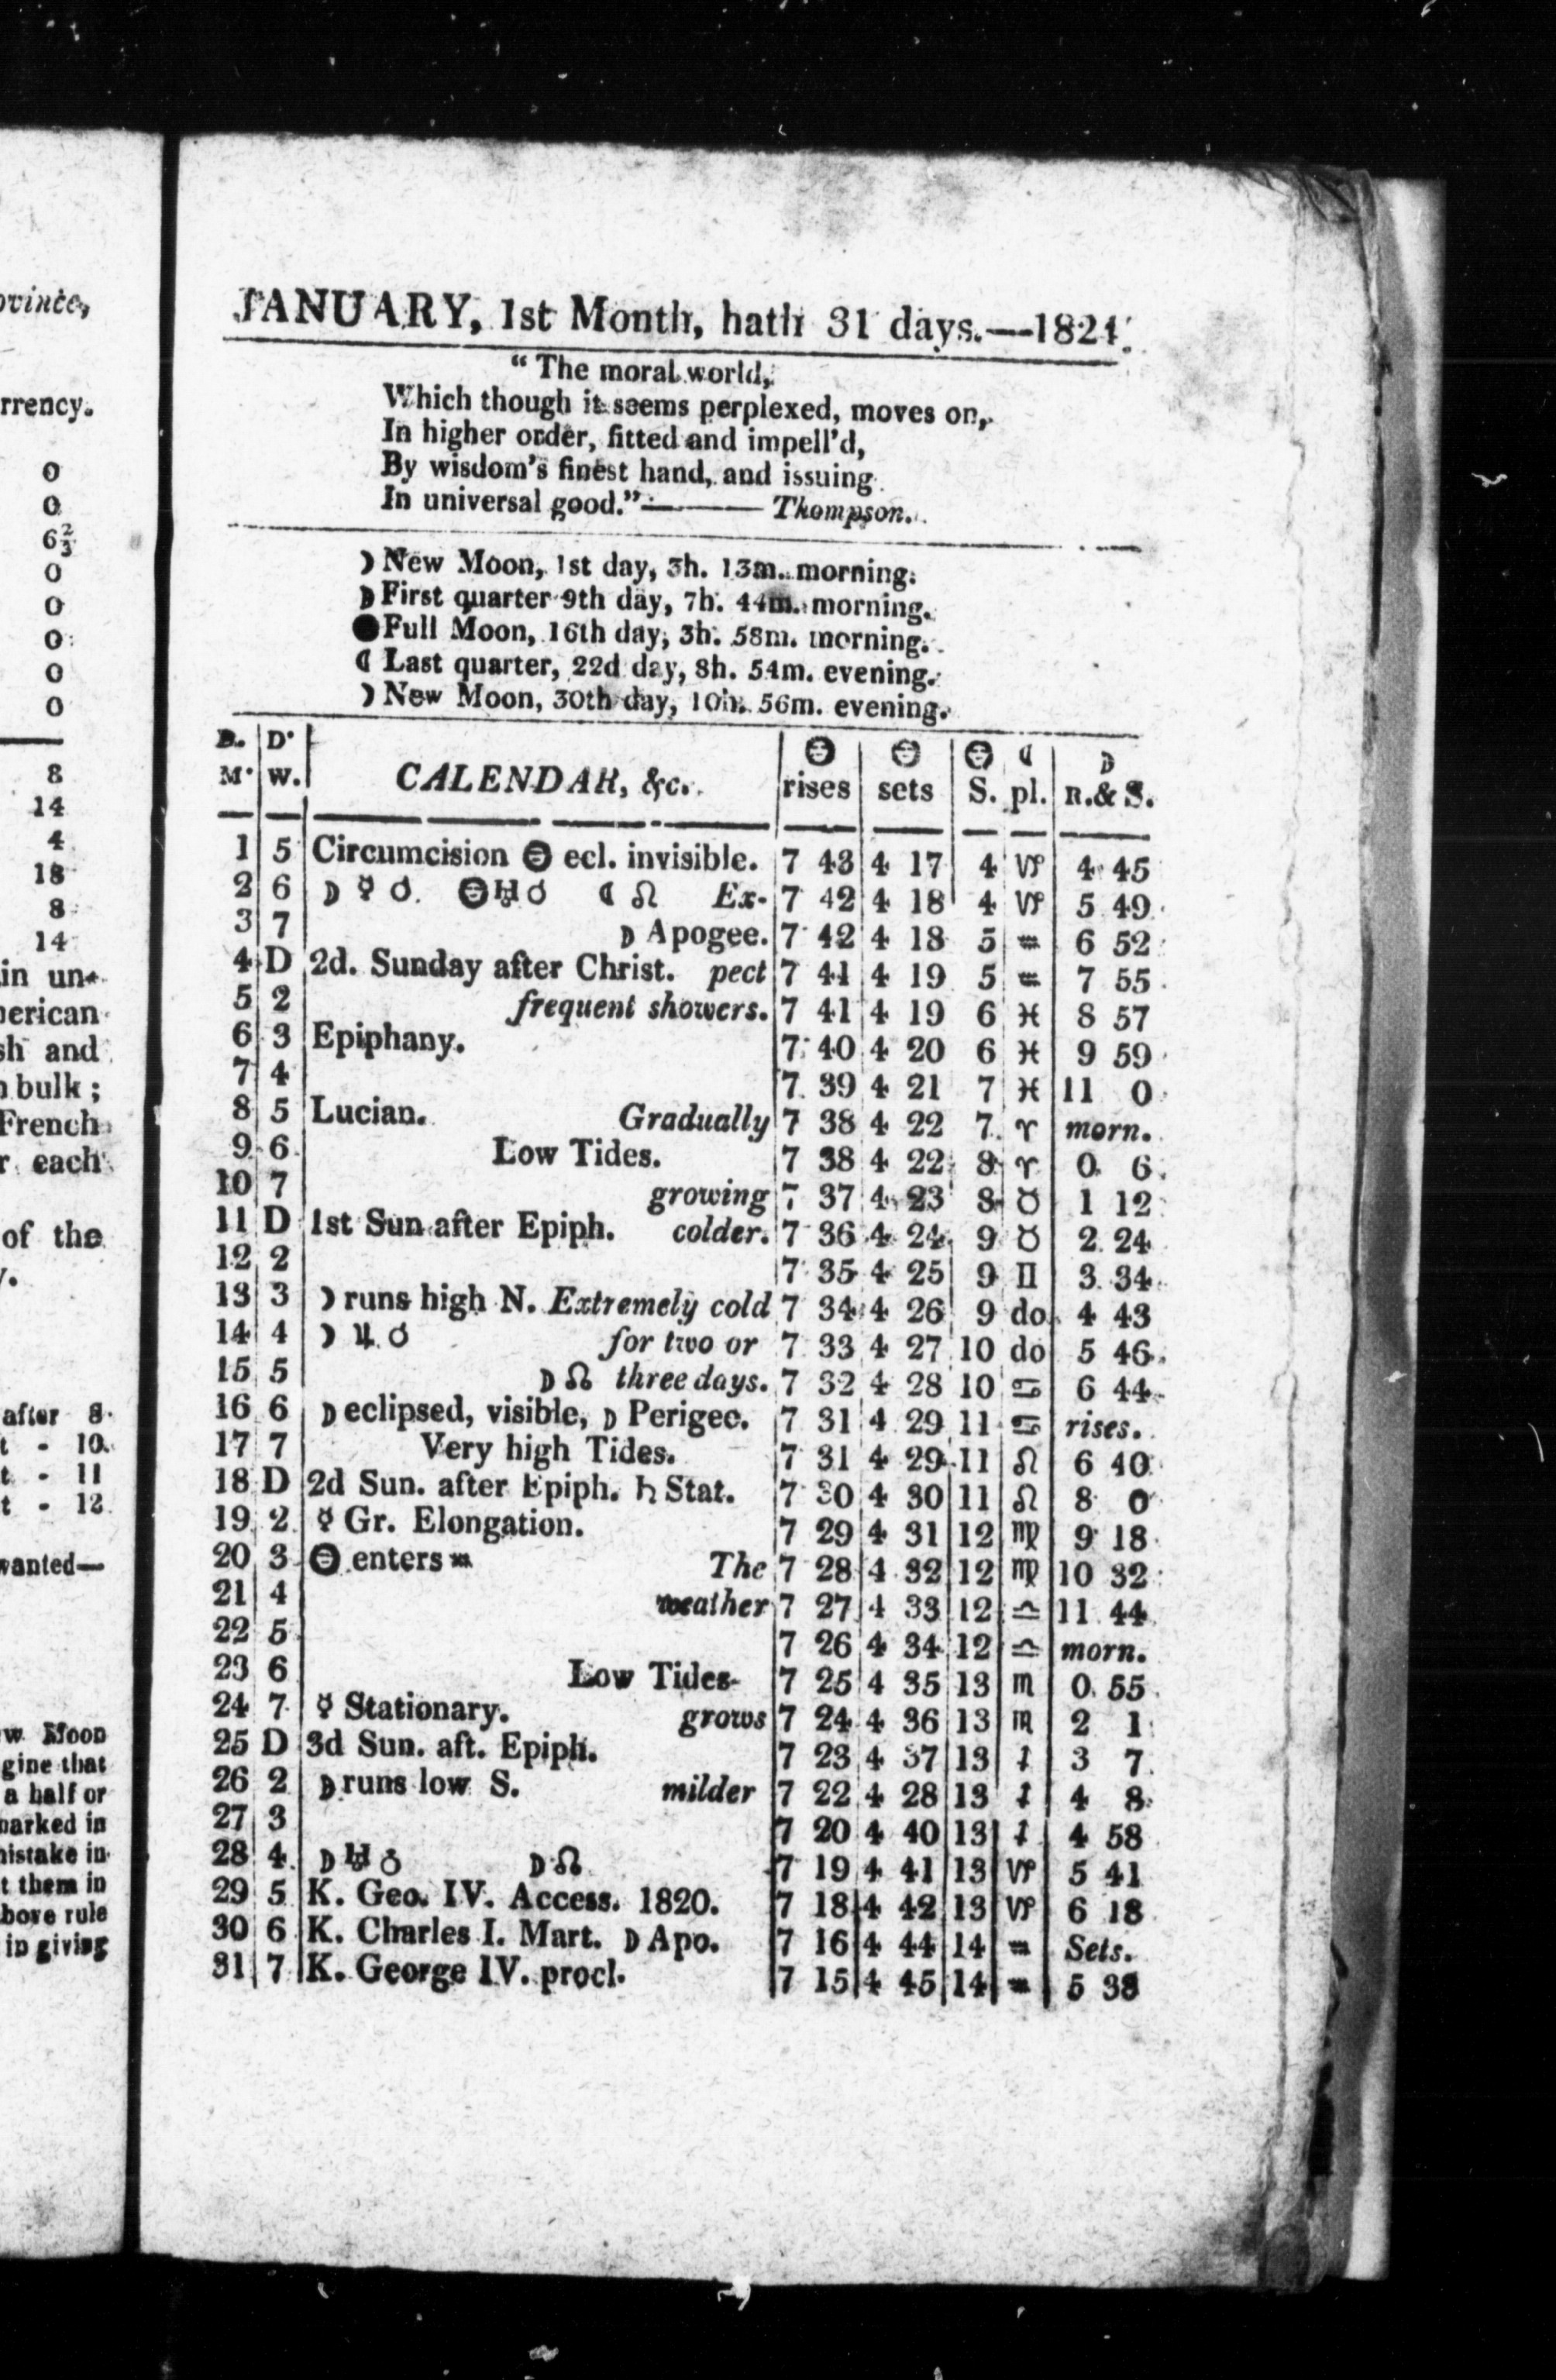 ovince,
rrency.
0
0
6⅔
0
0
0
0
0
8
14
4
18
8
14
in un-
erican
sh and
bulk ;
French
r each
of the
y.
after 8
t - 10
t - 11
t - 12
wanted—
w Moon
gine that
a half or
marked in
mistake in
t them in
bove rule
in giving
JANUARY, 1st Month, hath 31 days.—1824.
“ The moral world,
Which though it seems perplexed, moves on,
In higher order, fitted and impell'd,
By wisdom's finest hand, and issuing
In universal good.”——— Thompson.
☽ New Moon, 1st day, 3h. 13m. morning.
☽ First quarter 9th day, 7h. 44m. morning.
● Full Moon, 16th day, 3h. 58m. morning.
☾ Last quarter, 22d day, 8h. 54m. evening.
☽ New Moon, 30th day, 10h. 56m. evening.
D. M. | D. W. | CALENDAR, &c. | ☉ rises | ☉ sets | ☉ S. | ☾ pl. | ☽ R.& S.
1 5 Circumcision ☉ ecl. invisible. 7 43 4 17 4 ♑ 4 45
2 6 ☽ ☿ ☌. ☉♅☌ ☾ ☊ Ex- 7 42 4 18 4 ♑ 5 49
3 7 ☽ Apogee. 7 42 4 18 5 ♒ 6 52
4 D 2d. Sunday after Christ. pect 7 41 4 19 5 ♒ 7 55
5 2 frequent showers. 7 41 4 19 6 ♓ 8 57
6 3 Epiphany. 7 40 4 20 6 ♓ 9 59
7 4 7 39 4 21 7 ♓ 11 0
8 5 Lucian. Gradually 7 38 4 22 7 ♈ morn.
9 6 Low Tides. 7 38 4 22 8 ♈ 0 6
10 7 growing 7 37 4 23 8 ♉ 1 12
11 D 1st Sun after Epiph. colder. 7 36 4 24 9 ♉ 2 24
12 2 7 35 4 25 9 ♊ 3 34
13 3 ☽ runs high N. Extremely cold 7 34 4 26 9 do 4 43
14 4 ☽ ♃ ☌ for two or 7 33 4 27 10 do 5 46
15 5 ☽ ☊ three days. 7 32 4 28 10 ♋ 6 44
16 6 ☽ eclipsed, visible, ☽ Perigee. 7 31 4 29 11 ♋ rises.
17 7 Very high Tides. 7 31 4 29 11 ♌ 6 40
18 D 2d Sun. after Epiph. ♄ Stat. 7 30 4 30 11 ♌ 8 0
19 2 ☿ Gr. Elongation. 7 29 4 31 12 ♍ 9 18
20 3 ☉ enters ♒ The 7 28 4 32 12 ♍ 10 32
21 4 weather 7 27 4 33 12 ♎ 11 44
22 5 7 26 4 34 12 ♎ morn.
23 6 Low Tides 7 25 4 35 13 ♏ 0 55
24 7 ☿ Stationary. grows 7 24 4 36 13 ♏ 2 1
25 D 3d Sun. aft. Epiph. 7 23 4 37 13 ♐ 3 7
26 2 ☽ runs low S. milder 7 22 4 28 13 ♐ 4 8
27 3 7 20 4 40 13 ♐ 4 58
28 4 ☽ ♅ ☌ ☽ ☊ 7 19 4 41 13 ♑ 5 41
29 5 K. Geo. IV. Access. 1820. 7 18 4 42 13 ♑ 6 18
30 6 K. Charles I. Mart. ☽ Apo. 7 16 4 44 14 ♒ Sets.
31 7 K. George IV. procl. 7 15 4 45 14 ♒ 5 38